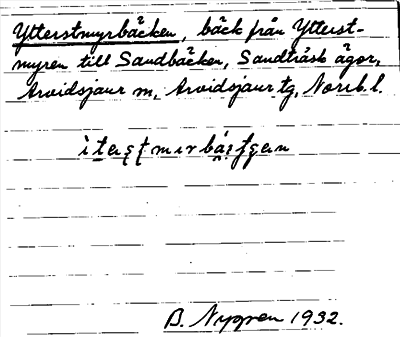 Ytterstmyrbäcken, bäck från Ytterst-
myren till Sandbäcken, Sandträsk ägor,
Arvidsjaur m, Arvidsjaur tg, Norrb. l.
B. Nygren 1932.